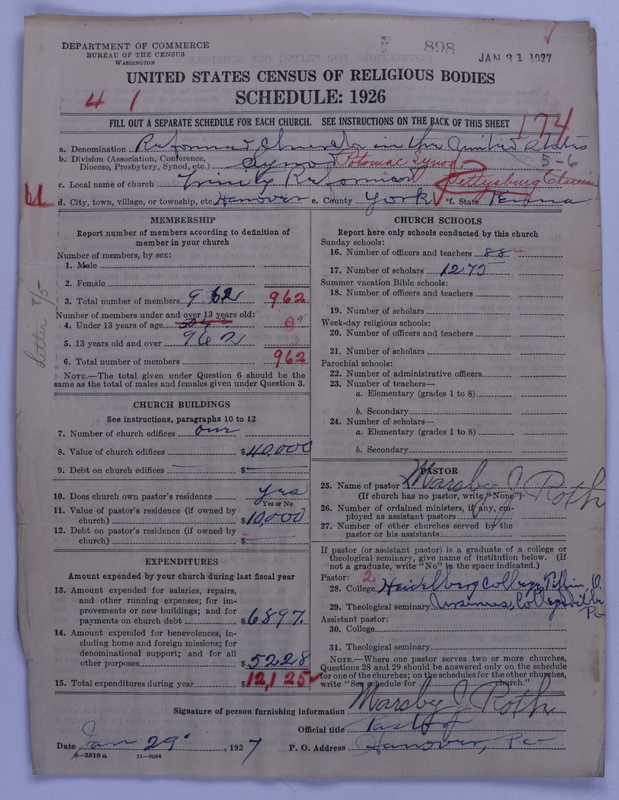 898
JAN 31 1927
DEPARTMENT OF COMMERCE
BUREAU OF THE CENSUS
WASHINGTON
UNITED STATES CENSUS OF RELIGIOUS BODIES
SCHEDULE: 1926
4 1
FILL OUT A SEPARATE SCHEDULE FOR EACH CHURCH. SEE INSTRUCTIONS ON THE BACK OF THIS SHEET
174
a. Denomination Reformed Church in the United States
b. Division (Association, Conference, Diocese, Presbytery, Synod, etc.) Synod Potomac Synod 5-6
c. Local name of church Trinity Reformed Gettysburg Classis
d. City, town, village, or township, etc. Hanover e. County York f. State Penna
Letter 7/5
MEMBERSHIP
Report number of members according to definition of
member in your church
Number of members, by sex:
1. Male
2. Female
3. Total number of members 962 962
Number of members under and over 13 years old:
4. Under 13 years of age
5. 13 years old and over 962
6. Total number of members 962
NOTE.—The total given under Question 6 should be the
same as the total of males and females given under Question 3.
CHURCH BUILDINGS
See instructions, paragraphs 10 to 12
7. Number of church edifices one
8. Value of church edifices $40,000
9. Debt on church edifices $
10. Does church own pastor's residence yes
Yes or No
11. Value of pastor's residence (if owned by
church) $10,000
12. Debt on pastor's residence (if owned by
church) $
EXPENDITURES
Amount expended by your church during last fiscal year
13. Amount expended for salaries, repairs,
and other running expenses; for im-
provements or new buildings; and for
payments on church debt $6897.
14. Amount expended for benevolences, in-
cluding home and foreign missions; for
denominational support; and for all
other purposes $5228
15. Total expenditures during year $12,125
CHURCH SCHOOLS
Report here only schools conducted by this church
Sunday schools:
16. Number of officers and teachers 88
17. Number of scholars 1273
Summer vacation Bible schools:
18. Number of officers and teachers
19. Number of scholars
Week-day religious schools:
20. Number of officers and teachers
21. Number of scholars
Parochial schools:
22. Number of administrative officers
23. Number of teachers—
a. Elementary (grades 1 to 8)
b. Secondary
24. Number of scholars—
a. Elementary (grades 1 to 8)
b. Secondary
PASTOR
25. Name of pastor Marsby J. Roth
(If church has no pastor, write "None")
26. Number of ordained ministers, if any, em-
ployed as assistant pastors
27. Number of other churches served by the
pastor or his assistants
If pastor (or assistant pastor) is a graduate of a college or
theological seminary, give name of institution below. (If
not a graduate, write "No" in the space indicated.)
Pastor: 2
28. College Heidelberg College, Tiffin, O.
29. Theological seminary Ursinus, Collegeville Pa
Assistant pastor:
30. College
31. Theological seminary
NOTE.—Where one pastor serves two or more churches,
Questions 28 and 29 should be answered only on the schedule
for one of the churches; on the schedules for the other churches,
write "See schedule for church."
Signature of person furnishing information Marsby J. Roth
Official title Pastor
Date Jan 29, 1927 P. O. Address Hanover, Pa
8-5518a 11-8054